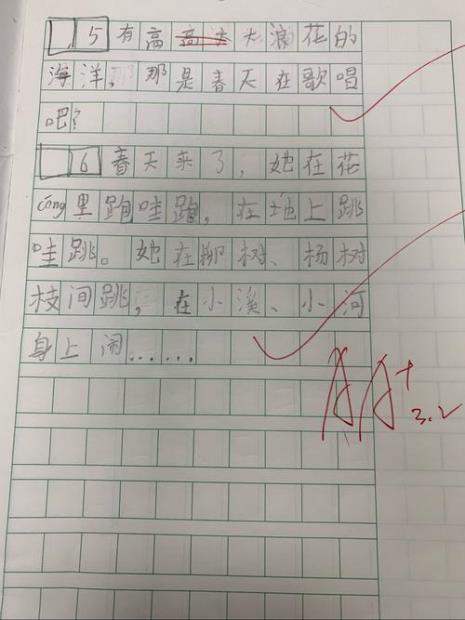 5有高高大大浪花的
海洋，那是春天在歌唱
吧？
6春天来了，她在花
cóng里跑哇跑，在地上跳
哇跳。她在柳树、杨树
枝间跳，在小溪、小河
身上闹……
AA+
3.2